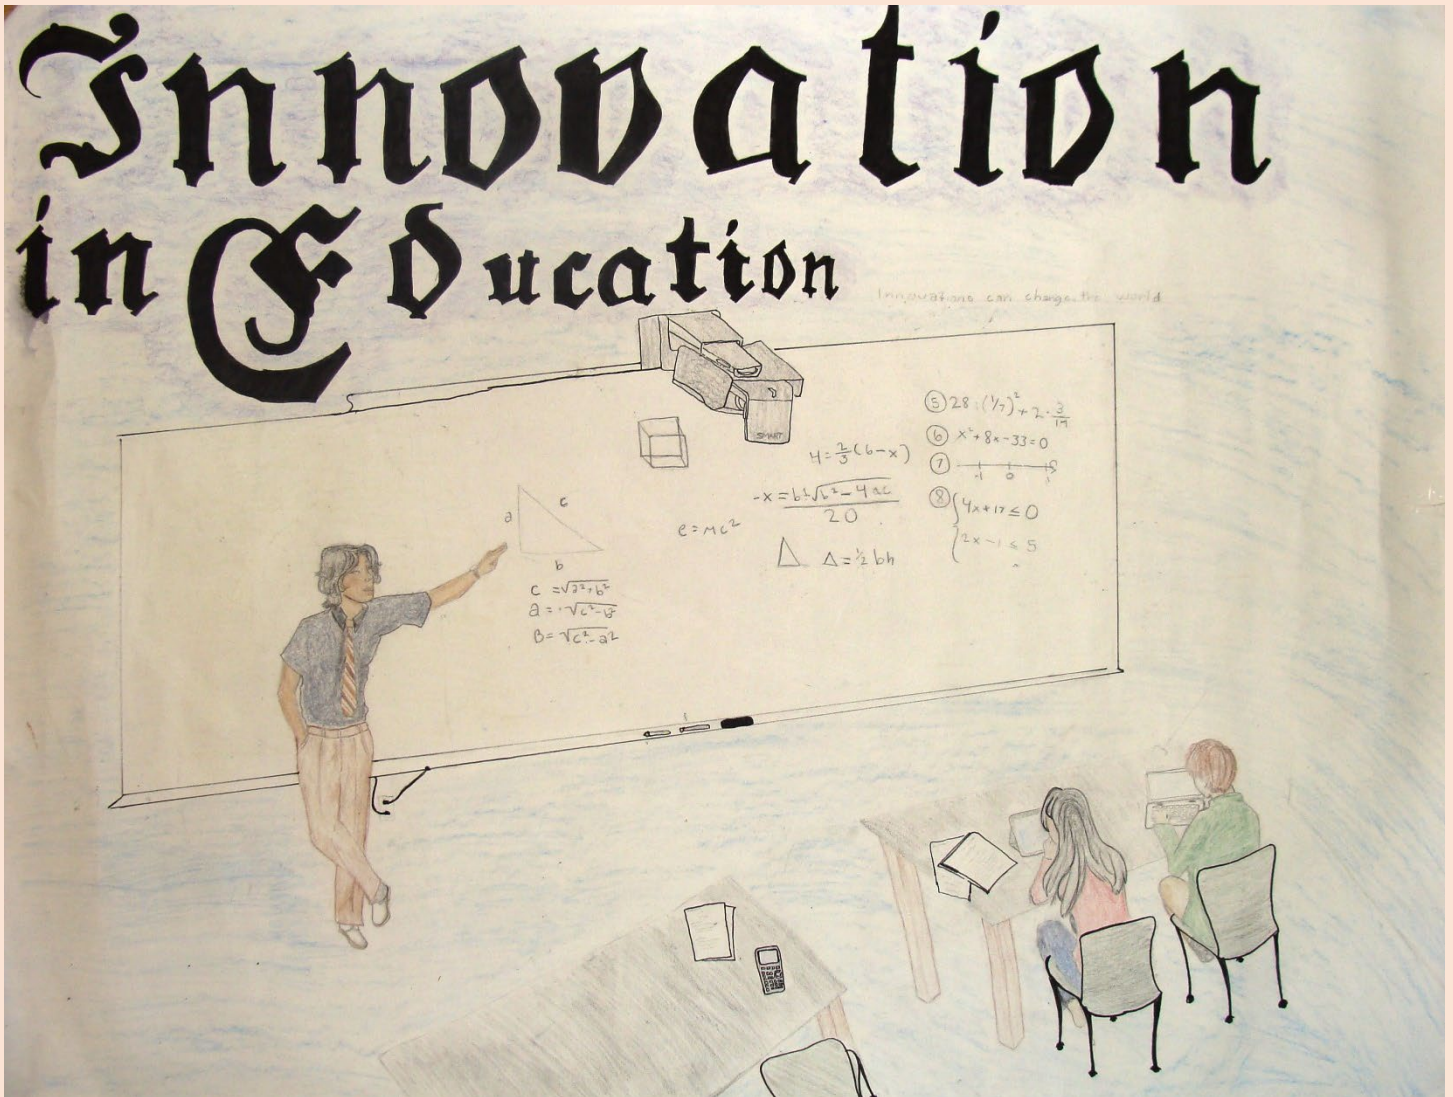 Innovation
in Education
Innovations can change the world
SMART
a
c
b
c = √a²+b²
a = √c²-b²
B = √c²-a²
e=mc²
4 = 2/3 (6-x)
-x = b±√b²-4ac
20
Δ = ½ bh
⑤ 28 : (1/7)² + 2 · 3/17
⑥ x²+8x-33=0
⑦
-1 0 1
⑧ 4x+17≤0
2x-1≤5